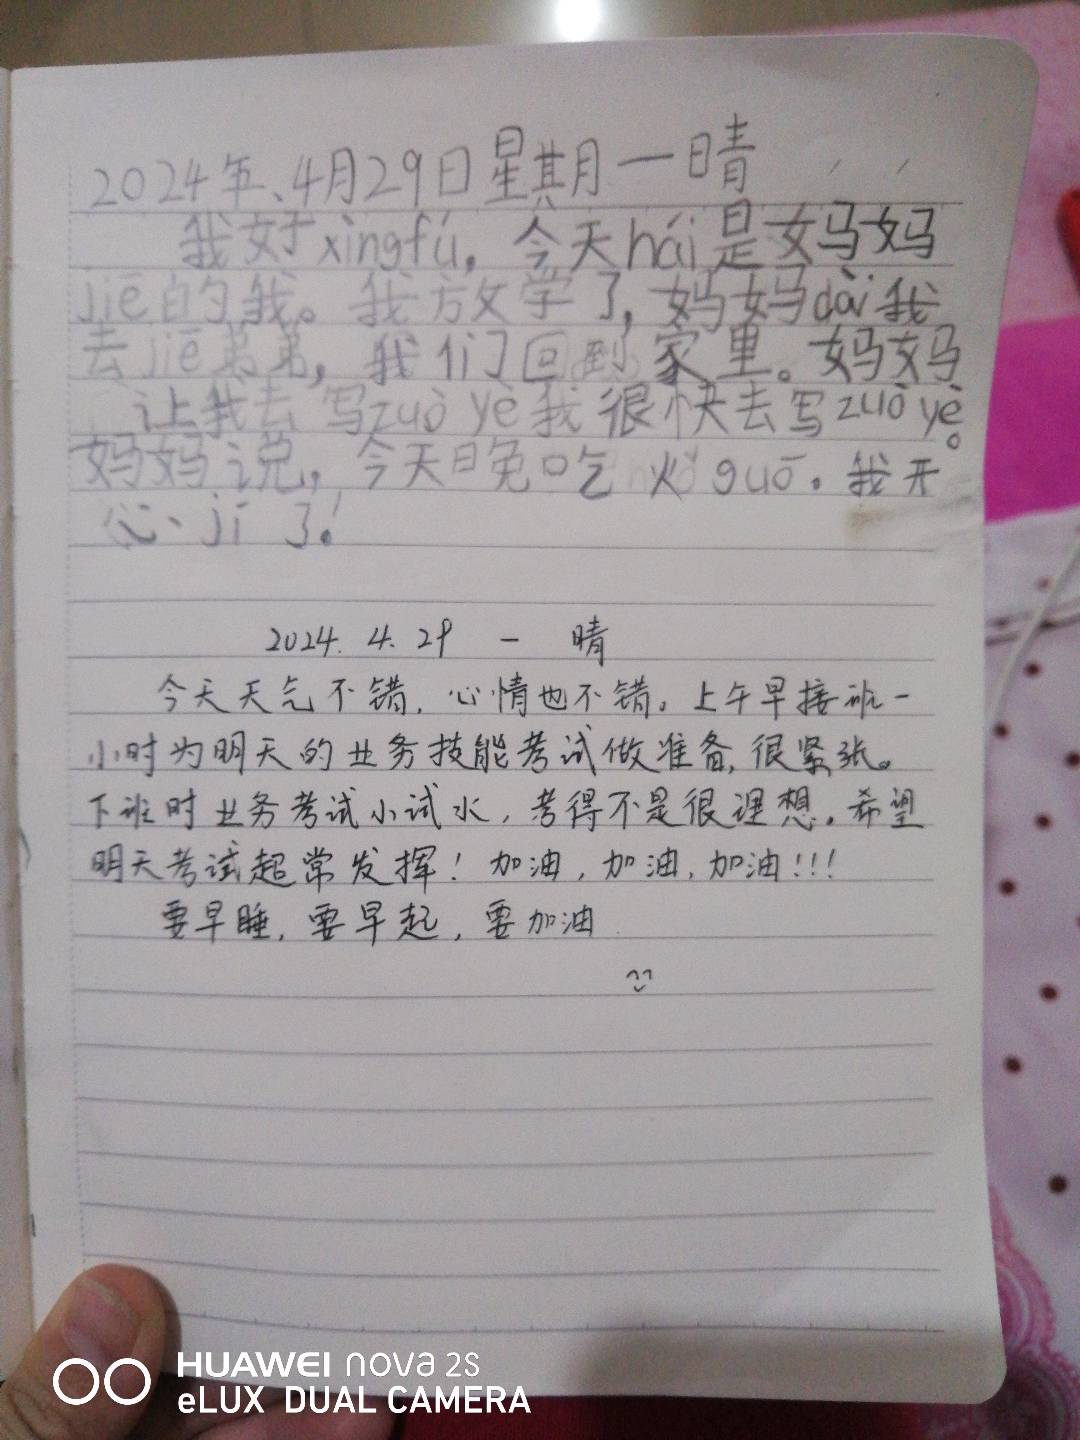 2024年、4月29日星期一晴
我好xìngfú，今天hái是妈妈
jiē的我。我放学了，妈妈dài我
去jiē弟弟，我们回到家里。妈妈
让我去写zuò yè我很快去写zuò yè。
妈妈说，今天晚吃火guō。我开
心、jí了！
2024.4.29 一 晴
今天天气不错，心情也不错。上午早接班一
小时为明天的业务技能考试做准备，很紧张。
下班时业务考试小试水，考得不是很理想。希望
明天考试超常发挥！加油，加油，加油！！！
要早睡，要早起，要加油
HUAWEI nova 2S
eLUX DUAL CAMERA